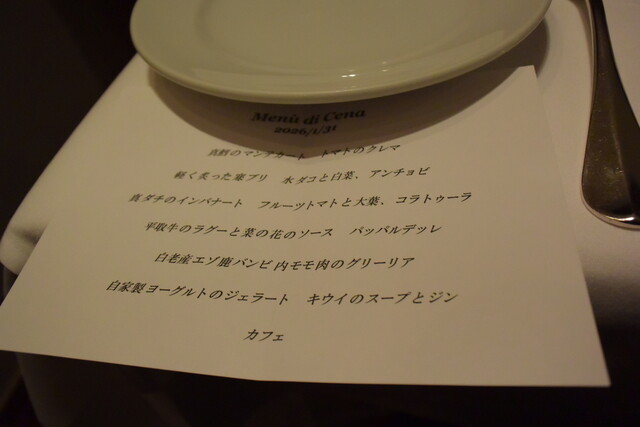 Menù di Cena
2026/1/31
真鱈のマンテカート　トマトのクレマ
軽く炙った寒ブリ　水ダコと白菜、アンチョビ
真ダチのインパナート　フルーツトマトと大葉、コラトゥーラ
平取牛のラグーと菜の花のソース　パッパルデッレ
白老産エゾ鹿バンビ内モモ肉のグリーリア
自家製ヨーグルトのジェラート　キウイのスープとジン
カフェ